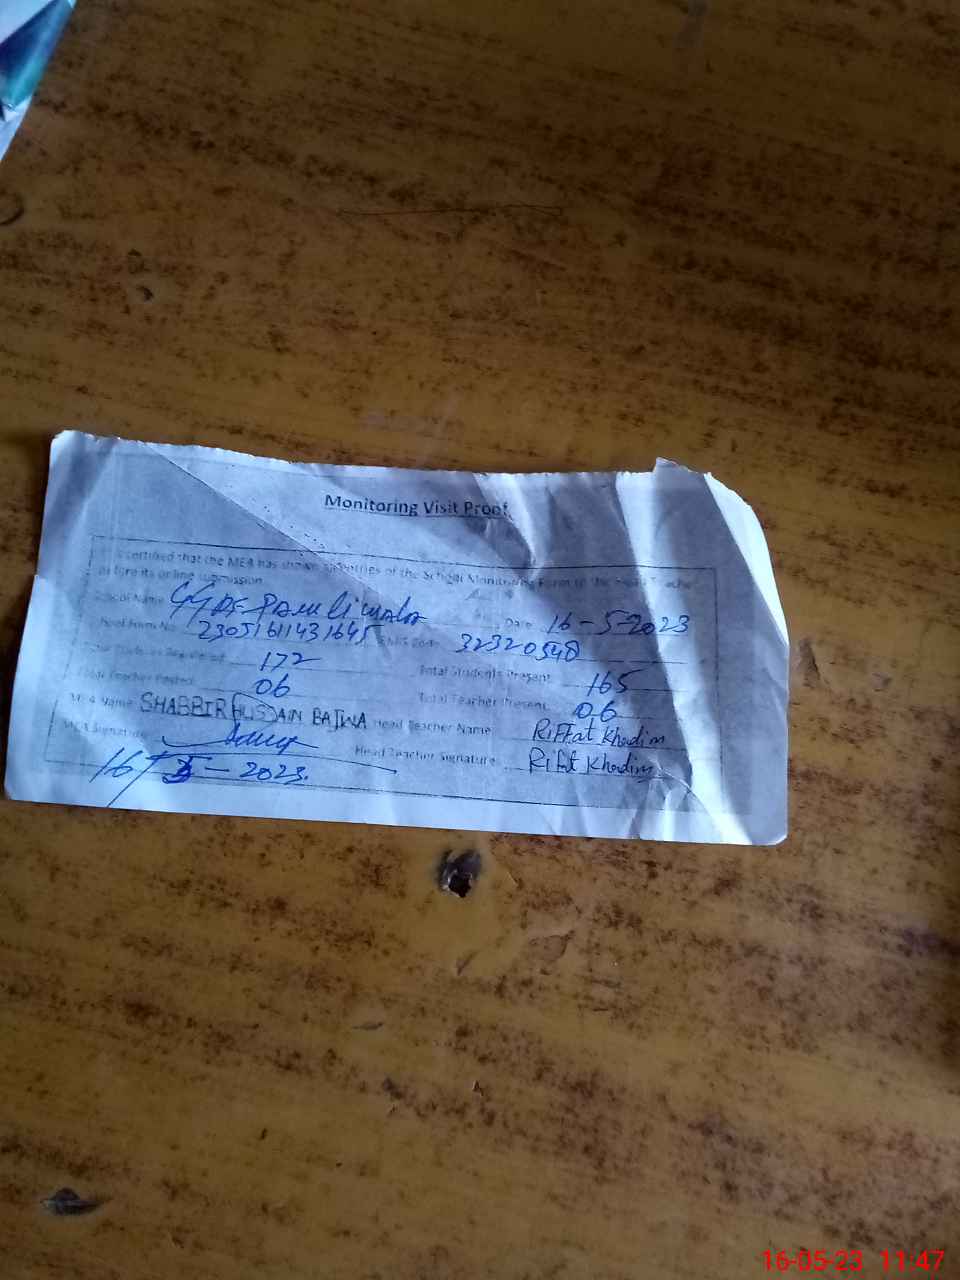 Monitoring Visit Proof
certified that the MEA has shown all entries of the School Monitoring Form to the Head Teacher
before its online submission.
School Name Date 16-5-2023
23051611431645 32320548
172 Total Students Present 165
Total Teacher Posted 06 Total Teacher Present 06
MEA Name SHABBIR HUSSAIN BAJWA Head Teacher Name Riffat Khadim
MEA Signature Head Teacher Signature Rifat Khadim
16/5-2023.
16-05-23 11:47